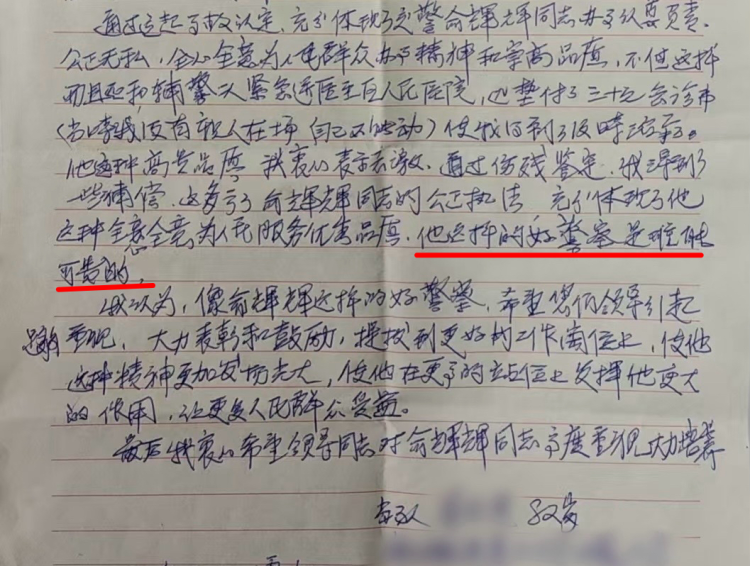 通过这起事故认定，充分体现了交警俞辉辉同志办事认真负责、
公正无私，全心全意为人民群众办事精神和崇高品质，不但这样
而且还和辅警大 紧急送医至百人民医院，还垫付了三十元会诊市
（当时我没有亲人在场 自己不能动）使我得到了及时治疗。
他这种高贵品质 我衷心表示感谢。通过伤残鉴定，我得到了
一些补偿。这多亏了俞辉辉同志的公正执法 充分体现了他
这种全心全意为人民服务优秀品质。他这样的好警察是难能
可贵的，
我认为，像俞辉辉这样的好警察，希望您们领导引起
重视，大力表彰和鼓励，提拔到更好的工作岗位上，使他
这种精神更加发扬光大，使他在更高的站位上发挥他更大
的作用，让更多人民群众受益。
最后我衷心希望领导同志对俞辉辉同志高度重视大力培养
82岁